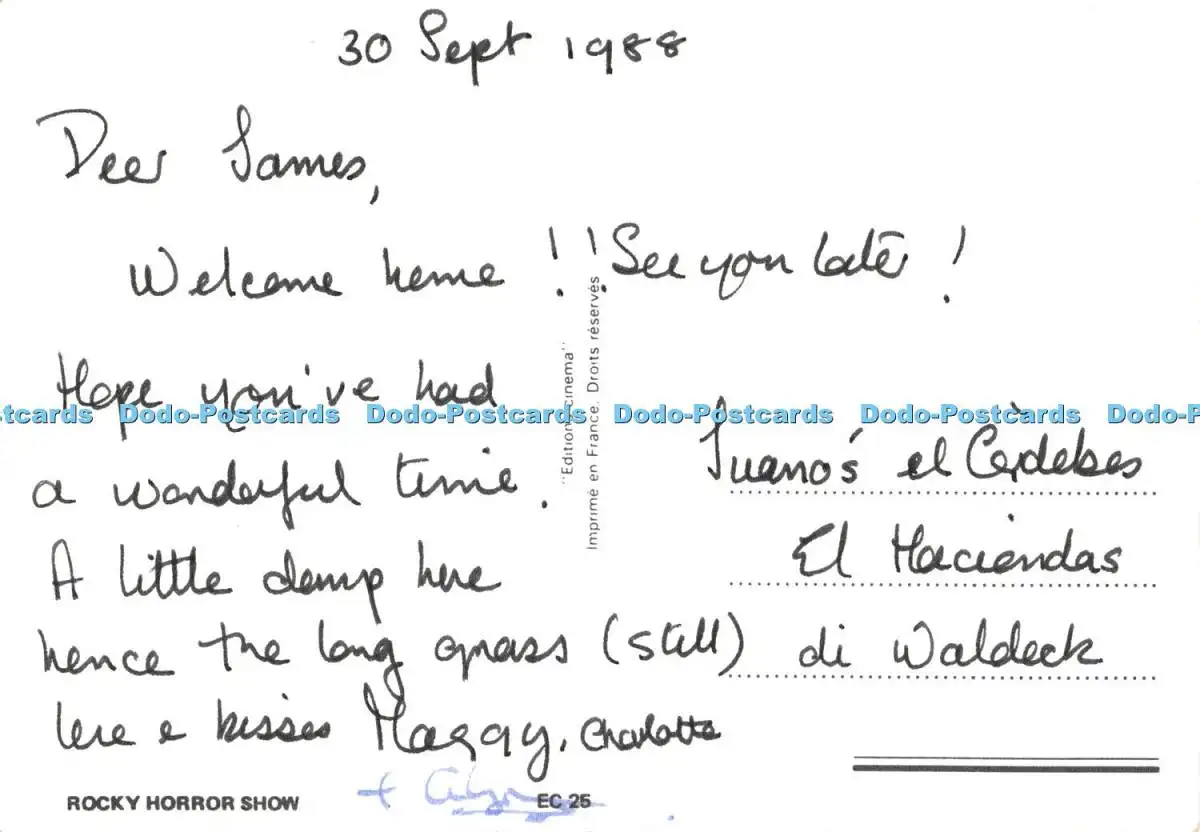 30 Sept 1988
Dear James,
Welcome home !! See you later !
Hope you've had
a wonderful time.
A little damp here
hence the long grass (still)
love & kisses Maggy, Charlotte
+
Juano's el
El Haciendas
di Waldeck
"Editions cinema"
Imprimé en France. Droits réservés
ROCKY HORROR SHOW
EC 25
Dodo-Postcards Dodo-Postcards Dodo-Postcards Dodo-Postcards